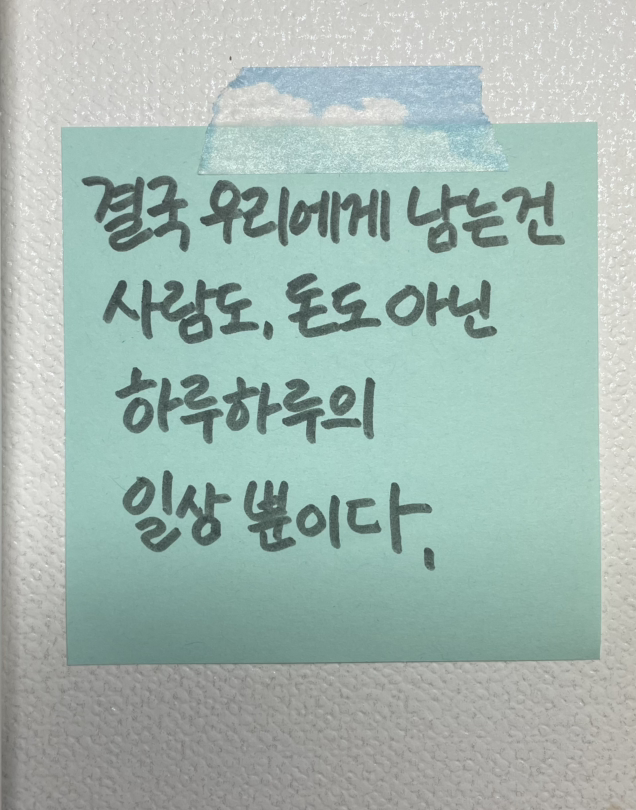 결국 우리에게 남는건
사람도, 돈도 아닌
하루하루의
일상 뿐이다.